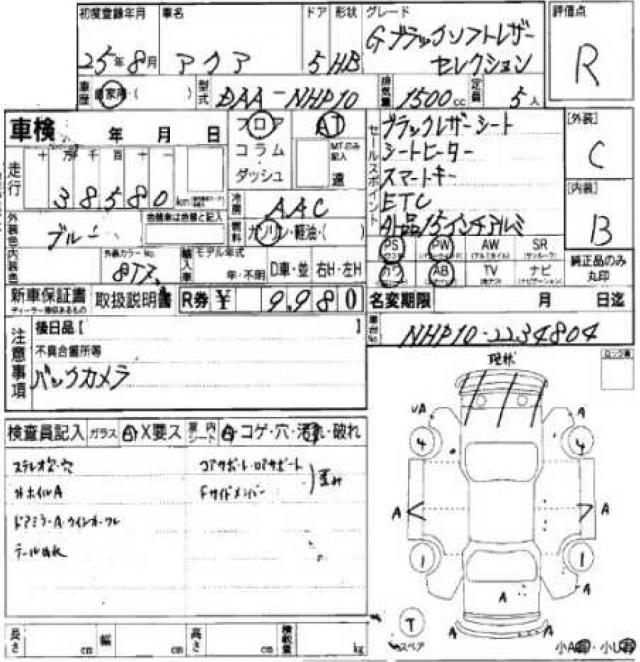 初度登録年月 車名 ドア 形状 グレード 評価点
25年8月 アクア 5 HB Gブラックソフトレザー
セレクション
R
車歴 自家用・( ) 型式 DAA-NHP10 排気量 1500cc 定員 5人
車検 年 月 日
フロア AT
コラム MT のみ記入
ダッシュ 速
セールスポイント
ブラックレザーシート
シートヒーター
スマートキー
ETC
15インチアルミ
[外装]
C
[内装]
B
純正品のみ
丸印
走行 十 万 千 百 十 一
38580 km
冷房 AAC
外装色 ブルー 色替車は色替と記入
燃料 ガソリン・軽油・( )
内装色 外装カラーNo. 8T7
輸入車 モデル年式 年・不明 D車・並 右H・左H
PS PW AW SR
カワ AB TV ナビ
新車保証書 取扱説明書 R券 ¥ 9,980
ディーラー捺印あるもの
名変期限 月 日迄
車台No. NHP10-2234804
注意事項
後日品【 】
不具合箇所等
バックカメラ
現状
コーションプレート
検査員記入 ガラス A X要ス 室内シート A コゲ・穴・汚れ・破れ
ステレオ穴・穴
ホイルA
ドアミラーA・ウインカーワレ
テール
コアサポート・ロアサポート
Fサイドメンバー
歪み
UA A
4 4
A A
1 1
A A
T
スペア
A A
長さ cm 幅 cm 高さ cm 積載量 kg
小A・小U